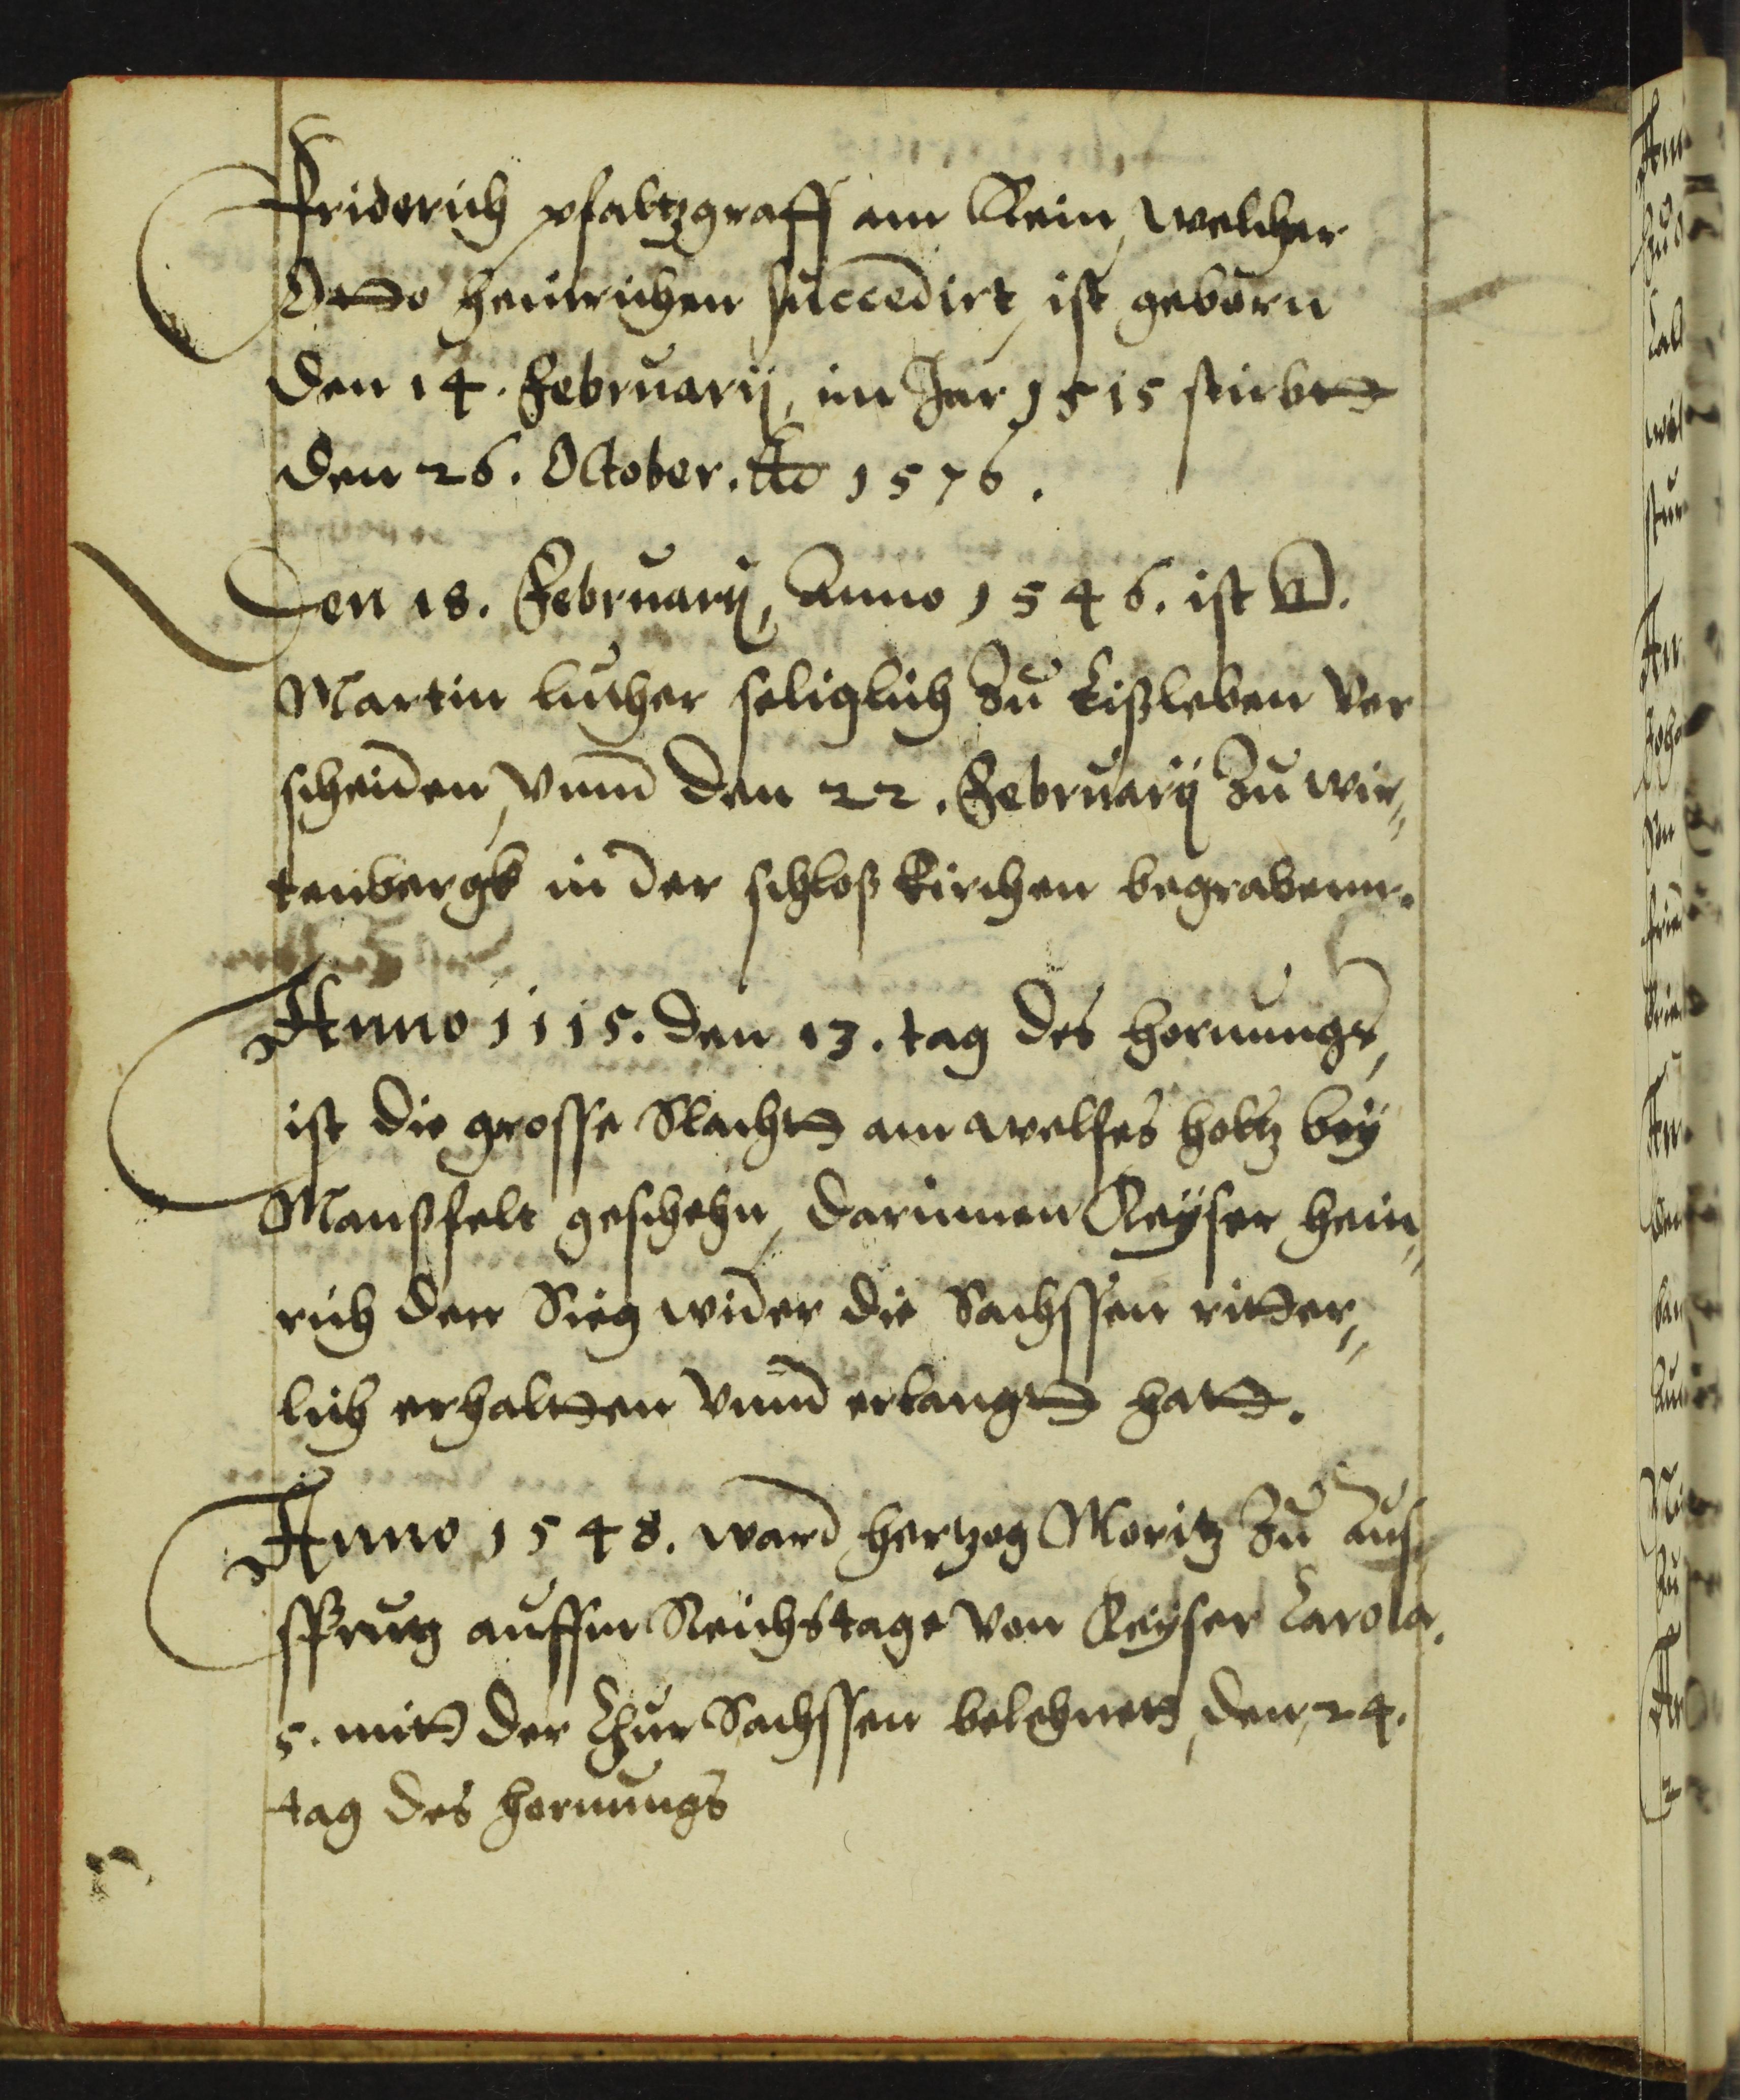 Friderich pfaltzgraff am Rein, welcher
Otto Heinrichen succedirt, ist geborn
den 14. Februarij, im Jar 1515 stirbtt
den 26. October. Ao 1576.
Den 18. Februarij, Anno 1546. ist D.
Martin Luther seliglich zu Eißleben ver
scheiden, vnnd den 22. Februarij zu Wit„
tenbergk in der schloß Kirchen begrabenn.
Anno 1115. den 13. tag des Hornungs,
ist die grosse Slachtt am Welfes holtz bey
Manßfelt geschehn, darinnen Keyser Hein„
rich den Sieg wider die Sachssen ritter„
lich erhaltten vnnd erlangtt hatt.
Anno 1548. ward Hertzog Moritz zu Aus
sprugg auffm Reichstage von Keyser Carola.
5. mitt der Chur Sachssen belehnett, den 24.
tag des Hornungs